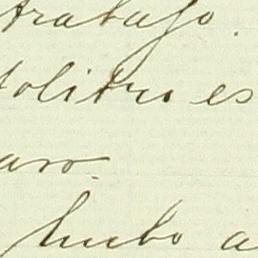 trabajo.
tolitro es
aro.
hubo a